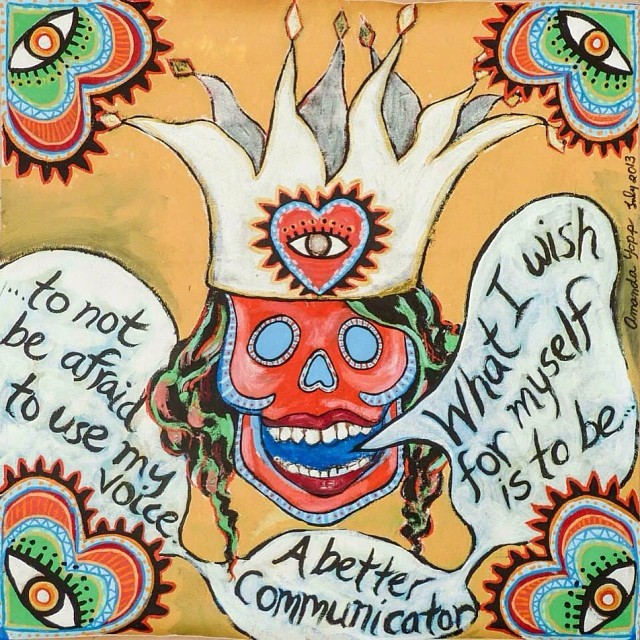 What I wish
for myself
is to be
A better
Communicator
...to not
be afraid
to use my
voice
July 2013